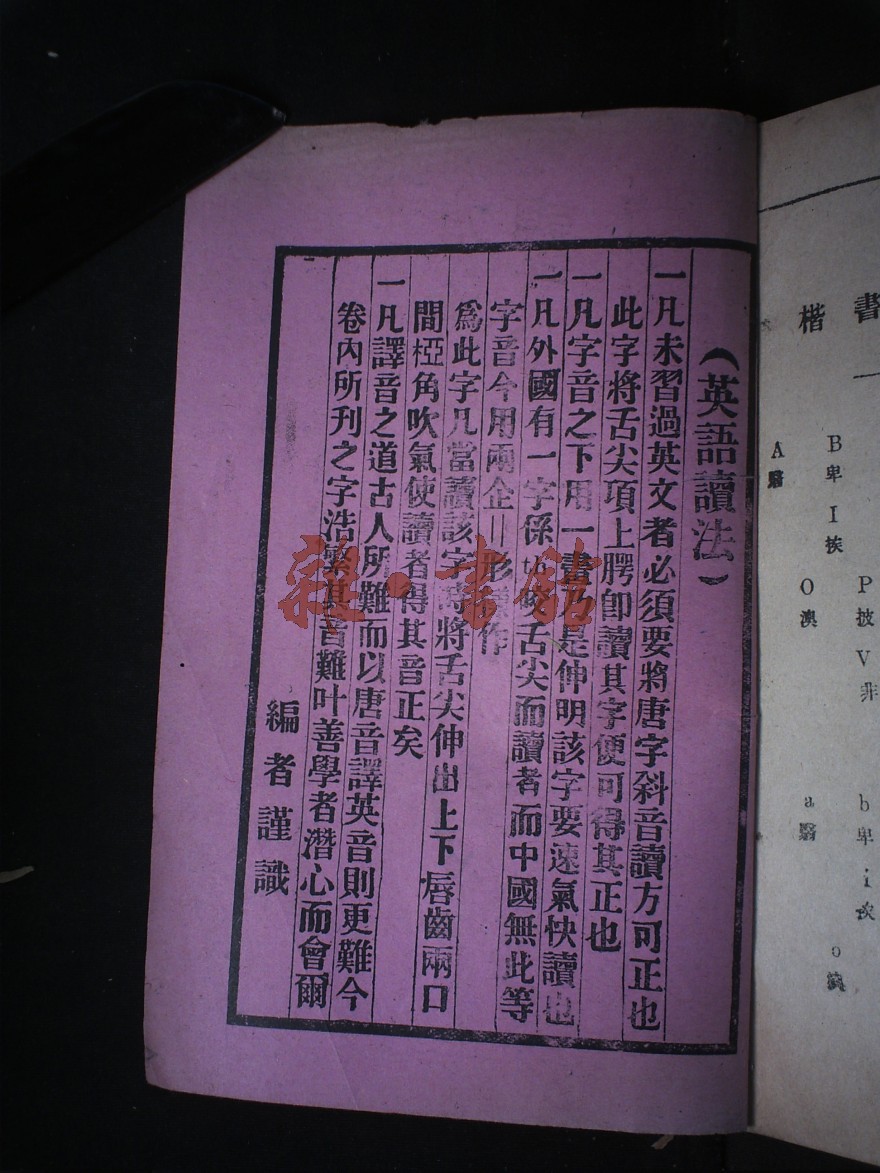 書
P披 V非 b卑 i挨
B卑 I挨 o澳
楷
O澳 a翳
A翳
（英語讀法）
一凡未習過英文者必須要將唐字斜音讀方可正也
此字將舌尖項上腭卽讀其字便可得其正也
一凡字音之下用一畫乃是伸明該字要速氣快讀也
一凡外國有一字係th咬舌尖而讀者而中國無此等
字音今用兩企||形作
爲此字凡當讀該字時將舌尖伸出上下唇齒兩口
間椏角吹氣使讀者得其音正矣
一凡譯音之道古人所難而以唐音譯英音則更難今
卷內所刊之字浩繁其音難叶善學者潛心而會爾
編者謹識
雜·書館